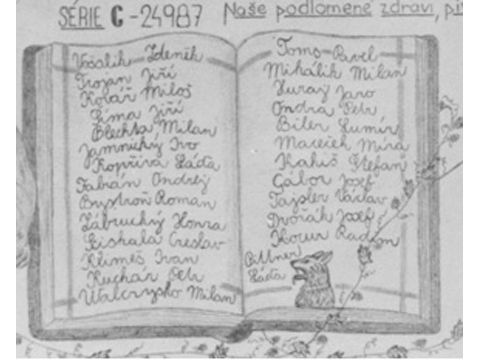 SÉRIE C - 24987
Naše podlomené zdraví, pi
Vošalík Zdeněk
Trojan Jiří
Kolář Miloš
Šíma Jiří
Blechta Milan
Jamnický Ivo
Kopřiva Láďa
Fabián Ondrej
Bystroň Roman
Zábrucký Honza
Česlav
Klimeš Ivan
Kuchár Petr
Walczysko Milan
Toms Pavel
Mihálik Milan
Juraj Jaro
Ondra Petr
Biler Lumír
Maceček Míra
Štefan
Gábor Josef
Tajsler Václav
Dvořák Josef
Kocur Radom
Bittner
Láďa